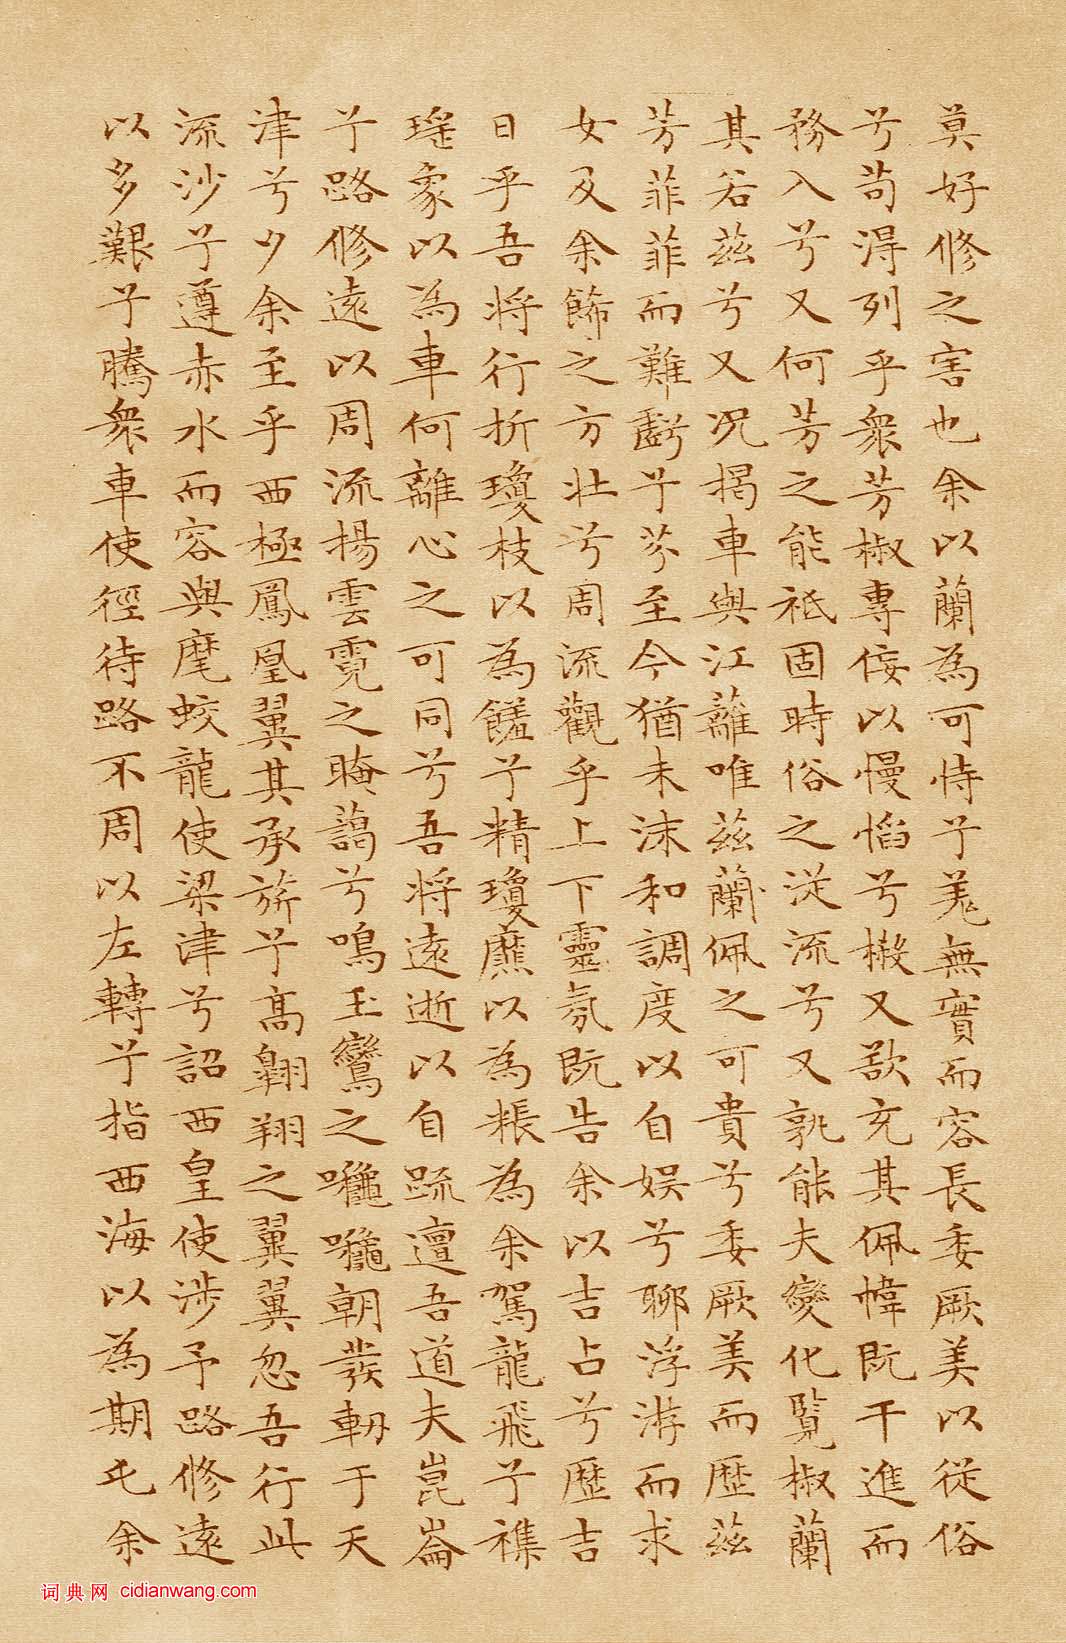 莫好修之害也余以蘭為可恃兮羌無實而容長委厥美以從俗
兮苟得列乎眾芳椒專佞以慢慆兮樧又欲充其佩幃既干進而
務入兮又何芳之能祗固時俗之從流兮又孰能夫變化覽椒蘭
其若茲兮又況揭車與江離唯茲蘭佩之可貴兮委厥美而歷茲
芳菲菲而難虧兮芬至今猶未沬和調度以自娛兮聊浮游而求
女及余飾之方壯兮周流觀乎上下靈氛既告余以吉占兮歷吉
日乎吾將行折瓊枝以為饈兮精瓊爢以為粻為余駕龍飛兮襍
瑤象以為車何離心之可同兮吾將遠逝以自疏邅吾道夫崑崙
兮路修遠以周流揚雲霓之晻藹兮鳴玉鸞之啾啾朝發軔于天
津兮夕余至乎西極鳳凰翼其承旂兮高翱翔之翼翼忽吾行此
流沙兮遵赤水而容與麾蛟龍使梁津兮詔西皇使涉予路修遠
以多艱兮騰眾車使徑待路不周以左轉兮指西海以為期屯余
词典网 cidianwang.com